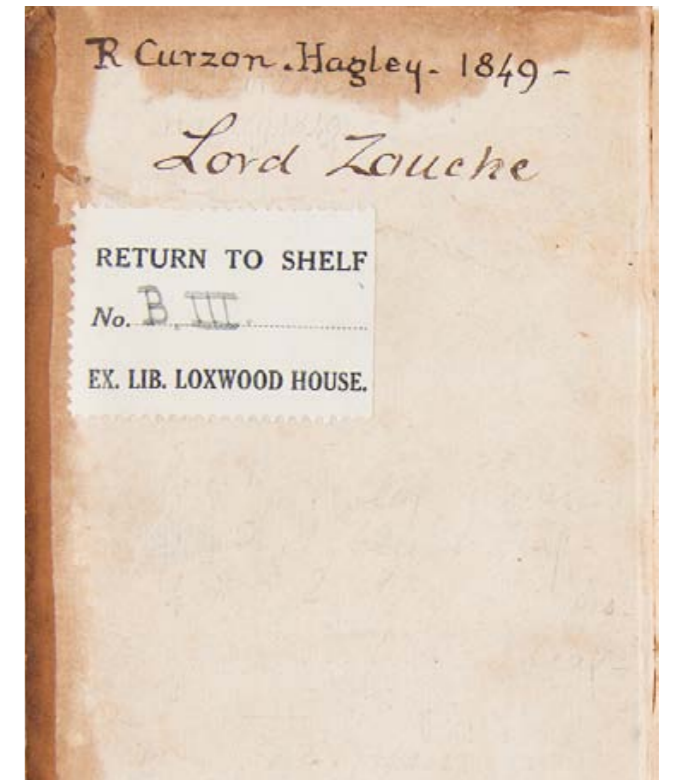 R Curzon. Hagley. 1849 -
Lord Zouche
RETURN TO SHELF
No. B. III.
EX. LIB. LOXWOOD HOUSE.